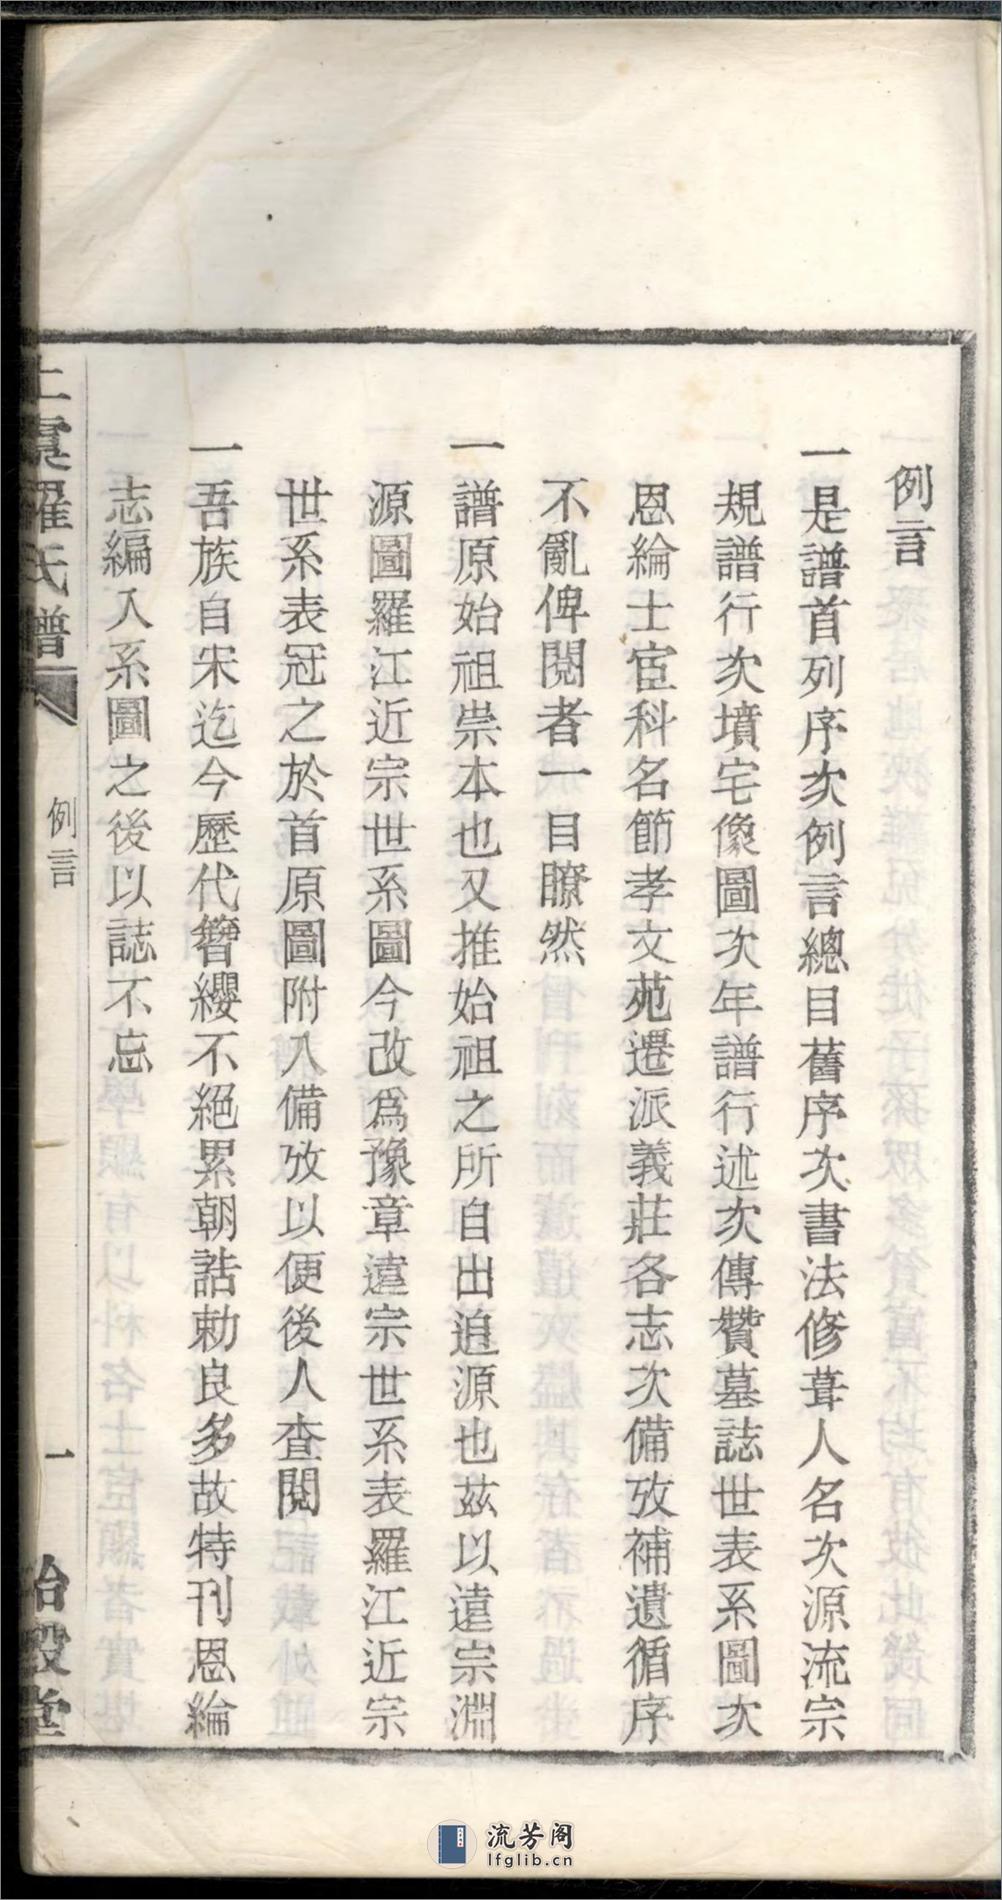 例言
一是譜首列序次例言總目舊序次書法修葺人名次源流宗
規譜行次墳宅像圖次年譜行述次傳贊墓誌世表系圖次
恩綸士宦科名節孝文苑遷派義莊各志次備攷補遺循序
不亂俾閱者一目瞭然
一譜原始祖崇本也又推始祖之所自出追源也茲以遠宗淵
源圖羅江近宗世系圖今改爲豫章遠宗世系表羅江近宗
世系表冠之於首原圖附入備攷以便後人查閱
一吾族自宋迄今歷代簪纓不絕累朝誥勅良多故特刊恩綸
志編入系圖之後以誌不忘
上虞羅氏譜
例言
一
流芳阁
lfglib.cn